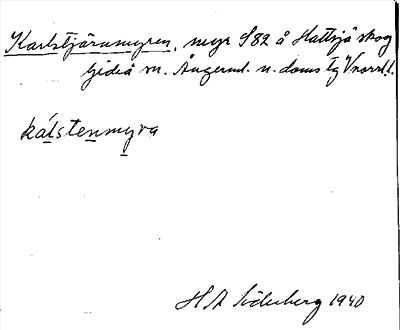 Karlstjärnmyren, myr S82 å Hattsjö skog
Gideå sn. Ångerml. n. doms. tg Vnorrl. l.
kálstenmyra
H A Söderberg 1940